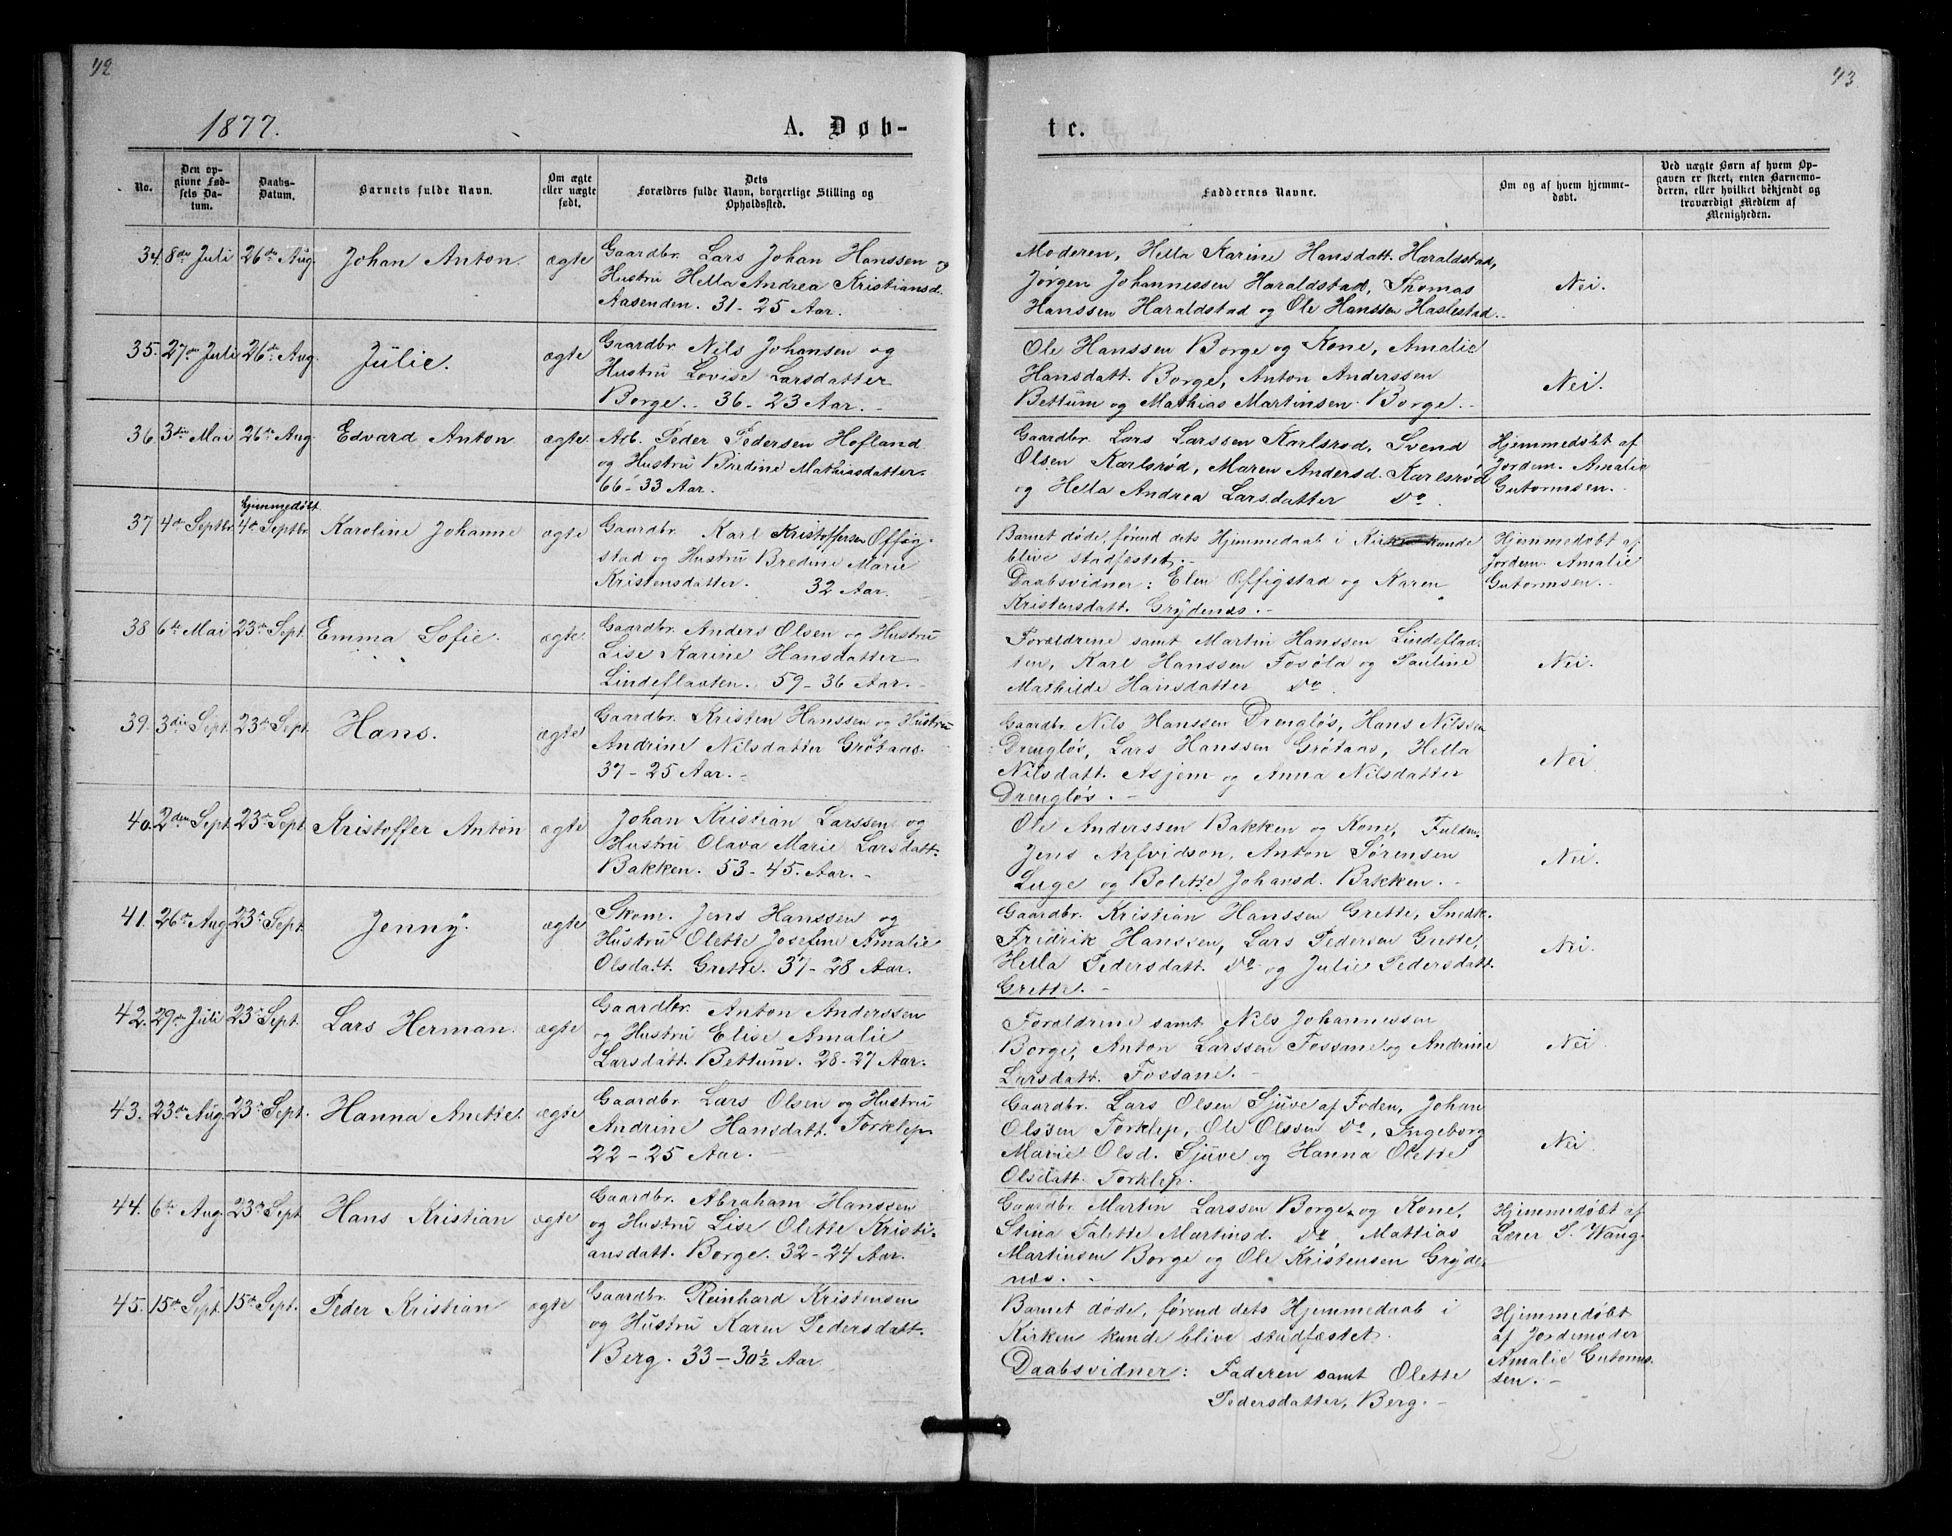 42
1877.
A. Døb-
No.
Den op-
givne Fød-
sels Da-
tum.
Daabs-
Datum.
Barnets fulde Navn.
Om ægte
eller uægte
født.
Dets
Forældres fulde Navn, borgerlige Stilling og
Opholdssted.
34. 8de Juli 26de Aug. Johan Anton. ægte
Gaardbr. Lars Johan Hanssen og
Hustru Hella Andrea Kristiansd.
Aasenden. 31 - 25 Aar.
35. 27de Juli 26de Aug. Julie. ægte
Gaardbr. Nils Johansen og
Hustru Lovise Larsdatter
Borge. 36 - 23 Aar.
36. 3die Mai 26de Aug. Edvard Anton ægte
Arb. Peder Pedersen Hofland
og Hustru Bredine Mathiasdatter
66 - 33 Aar.
Hjemmedøbt
37 4de Septbr. 4de Septbr. Karoline Johanne ægte
Gaardbr. Karl Kristoffersen Offig-
stad og Hustru Bredine Marie
Kristensdatter. 32 Aar.
38 6te Mai 23de Sept. Emma Sofie. ægte
Gaardbr. Anders Olsen og Hustru
Lise Karine Hansdatter
Lindeflaaten. 59 - 36 Aar.
39. 3die Sept. 23de Sept. Hans. ægte
Gaardbr. Kristen Hanssen og Hustru
Andrine Nilsdatter Grøtaas.
37 - 25 Aar.
40. 2den Sept. 23de Sept. Kristoffer Anton ægte
Johan Kristian Larssen og
Hustru Olava Marie Larsdatt.
Bakken. 53 - 45. Aar.
41. 26de Aug 23de Sept. Jenny. ægte
Skom. Jens Hanssen og
Hustru Olette Josefine Amalie
Olsdatt. Grette. 37 - 28 Aar.
42. 29de Juli 23de Sept. Lars Herman. ægte
Gaardbr. Anton Anderssen
og Hustru Elise Amalie
Larsdatt. Bettum. 28 - 27 Aar.
43. 23de Aug 23de Sept. Hanna Anette. ægte
Gaardbr. Lars Olsen og Hustru
Andrine Hansdatt. Torklep
22 - 25 Aar.
44. 6te Aug 23de Sept. Hans Kristian ægte
Gaardbr. Abraham Hanssen
og Hustru Lise Olette Kristi-
ansdatt. Borge. 32 - 24 Aar.
45. 15de Sept. 15de Sept. Peder Kristian ægte
Gaardbr. Reinhard Kristensen
og Hustru Karen Pedersdatt.
Berg. 33 - 30½ Aar
43.
te.
Faddernes Navne.
Om og af hvem hjemme-
døbt.
Ved uægte Børn af hvem Op-
gaven er skeet, enten Barnemo-
deren, eller hvilket bekjendt og
troværdigt Medlem af
Menigheden.
Moderen, Hella Karine Hansdatt. Haraldstad,
Jørgen Johannessen Haraldstad, Thomas
Hanssen Haraldstad og Ole Hanssen Haslestad.
Nei.
Ole Hanssen Borge og Kone, Amalie
Hansdatt. Borge, Anton Anderssen
Bettum og Mathias Martinsen Borge.
Nei.
Gaardbr. Lars Larssen Karlsrød, Svend
Olsen Karlsrød, Maren Andersd. Karlsrød
og Hella Andrea Larsdatter Do
Hjemmedøbt af
Jordem. Amalie
Gutormsen.
Barnet døde, førend dets Hjemmedaab i Kirken kunde
blive stadfestet.
Daabsvidner: Elen Offigstad og Karen
Kristensdatt. Grydenæs.
Hjemmedøbt af
Jordem. Amalie
Gutormsen.
Forældrene samt Martin Hanssen Lindeflaa-
ten, Karl Hanssen Fosøla og Pauline
Mathilde Hansdatter Do
Nei.
Gaardbr. Nils Hanssen Drengløs, Hans Nilssen
Drengløs, Lars Hanssen Grøtaas, Hella
Nilsdatt. Asjem og Anna Nilsdatter
Drengløs.
Nei
Ole Anderssen Bakken og Kone, Fuldm.
Jens Arfvidson, Anton Sørensen
Luge og Bolette Johansd. Bakken.
Nei.
Gaardbr. Kristian Hanssen Grette, Snedk.
Fridrik Hanssen, Lars Pedersen Grette,
Hella Pedersdatt. Do og Julie Pedersdatt.
Grette.
Nei.
Forældrene samt Nils Johannessen
Borge, Anton Larssen Fossane og Andrine
Larsdatt. Fossane.
Nei
Gaardbr. Lars Olsen Sjuve af Foden, Johan
Olssen Torklep, Ole Olssen Do, Ingeborg
Marie Olsd. Sjuve og Hanna Olette
Olsdatt. Torklep.
Nei
Gaardbr. Martin Larssen Borge og Kone,
Stina Talette Martinsd. Do, Mattias
Martinsen Borge og Ole Kristensen Gryde-
næs.
Hjemmedøbt af
Lærer S. Wang.
Barnet døde, førend dets Hjemmedaab i
Kirken kunde blive stadfæstet.
Daabsvidner: Faderen samt Olette
Pedersdatter, Berg.
Hjemmedøbt
af Jordemoder
Amalie Gutorms-
sen.